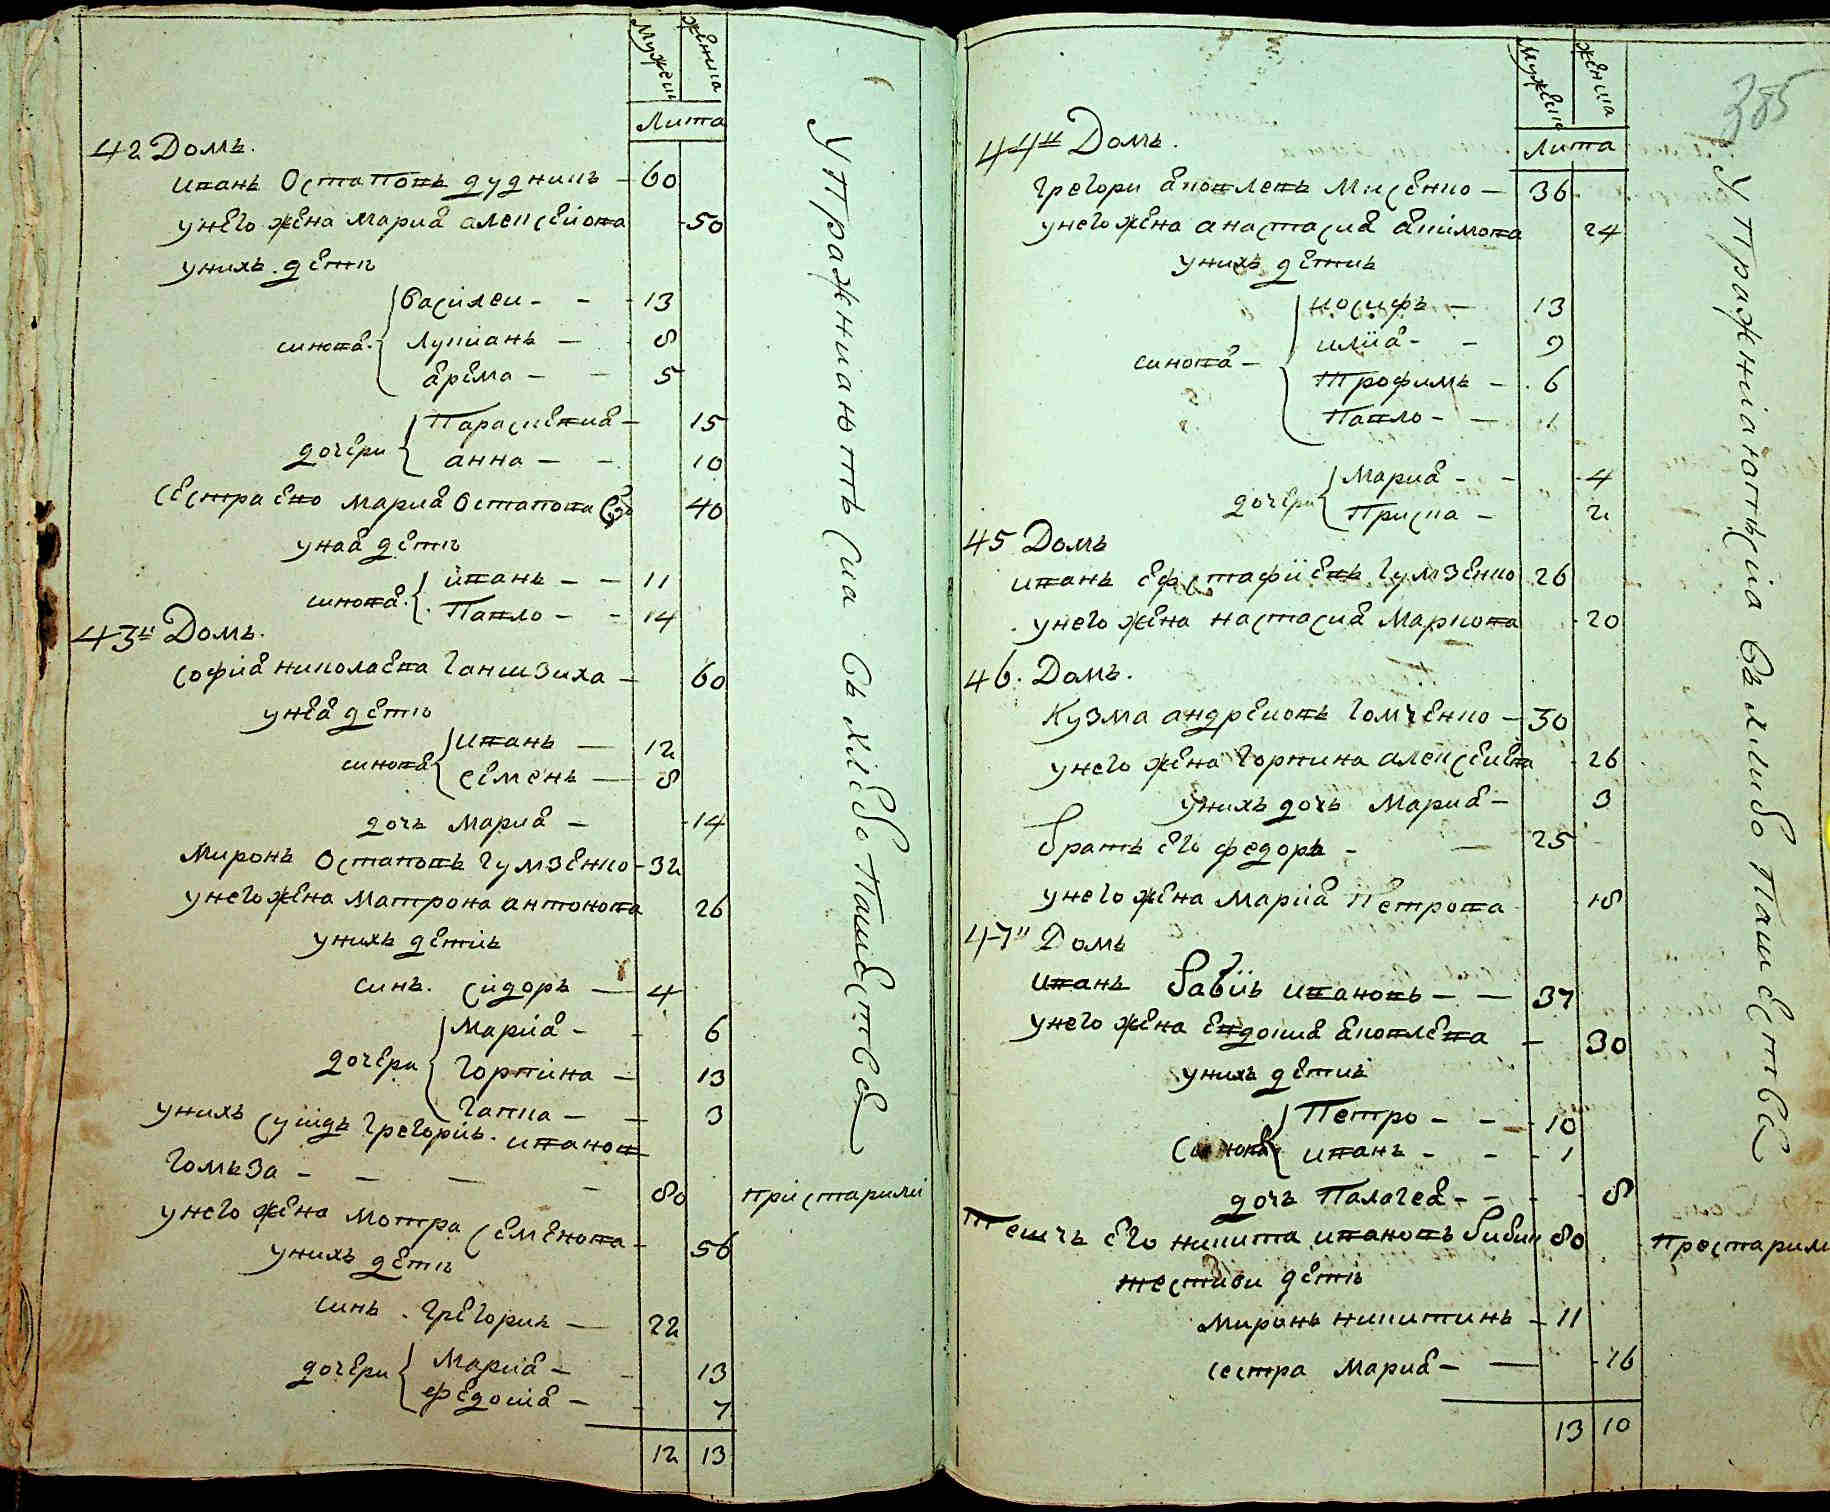 Мужеш женша
Лита
42 Домъ.
Иванъ Остаповъ дудникъ - 60
унего жена Мариа алексеиова - 50
унихъ дети
синова
василеи - - 13
Лукианъ - 8
арема - - 5
дочери
Параскевиа - 15
анна - - 10
сестра ево Мариа Остапова 40
унаа дети
синова
иванъ - - 11
Павло - - 14
43и Домъ.
София николаева Ганшзиха - 60
унеа дети
синова
Иванъ - 12
семенъ - 8
дочъ Мариа - 14
Миронъ Остаповъ Гумзенко - 32
унего жена Матрона антонова 26
унихъ детиь
синъ. сидоръ - 4
дочери
Мариа - - 6
Горпина - 13
Гапка - - 3
унихъ суицъ Грегориь. иванов
Гомъза - - - - 80 прістарили
унего жена Мотра Семенова - 56
унихъ дети
синъ. Грегории - 22
дочери
Мариа - - 13
Федосиа - - 7
12 13
Упражнианютъ сиа въ хлебо пашества
385
Мужеш женша
Лита
44и Домъ.
Грегори аковлевъ Мисенко - 36
унего жена анастасиа акимова 24
унихъ детиь
синова -
иосифъ - 13
илиа - - 9
Трофимъ - 6
Павло - - 1
дочери
Мариа - - 4
Приска - 2
45 Домъ
иванъ Ефстафиевъ Гумзенко 26
унего жена настасиа Маркова 20
46. Домъ.
Кузма андреиовъ Гомченко - 30
унего жена Горпина алексеивна 26
унихъ дочъ Мариа - 3
братъ его федоръ - - 25
унего жена Мариа Петрова 18
47и Домъ
Иванъ бабиь ивановъ - - 37
унего жена Евдокиа аковлева - 30
унихъ детиь
Синова
Петро - - 10
иванъ - - 1
дочъ Палагеа - - - 8
Тешчъ его никита ивановъ бибик 80 престарили
тествои дети
Миронъ никитинъ - 11
сестра Мариа - - 16
13 10
Упражниаютъсиа въ хлибо пашества